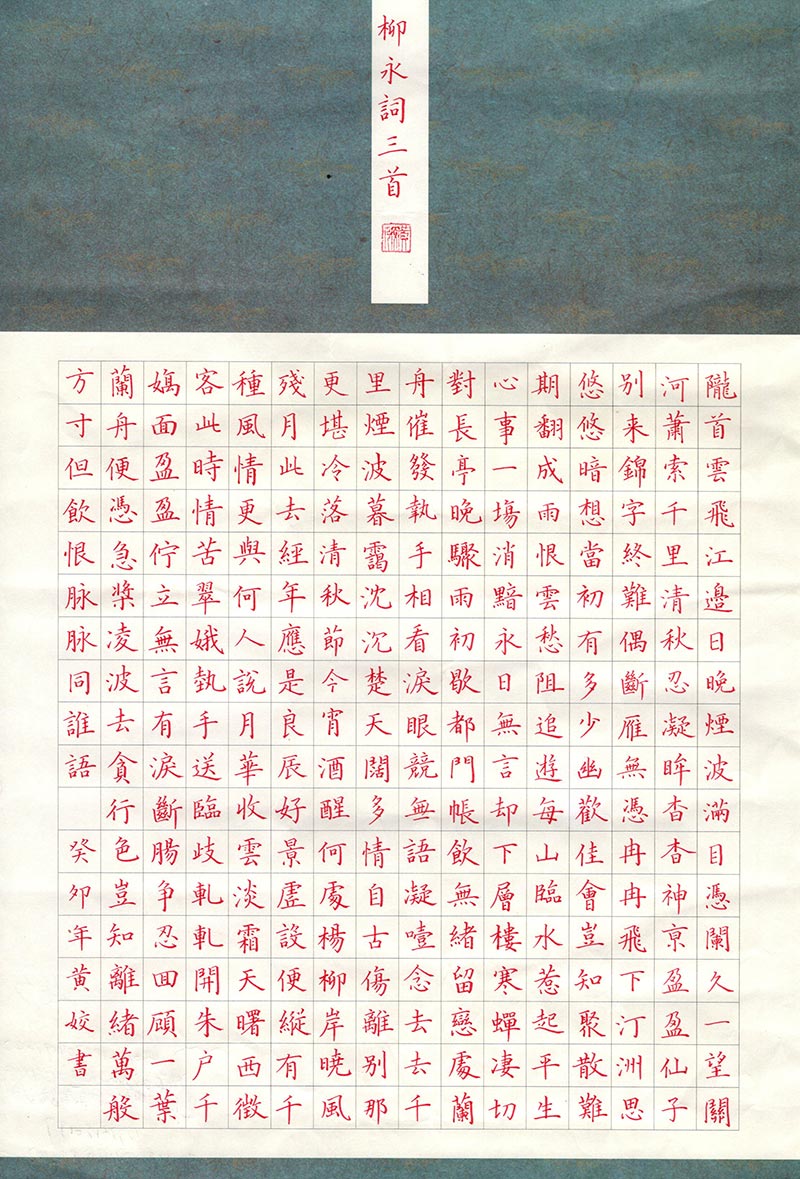 柳永詞三首
隴首雲飛江邊日晚煙波滿目憑闌久一望關
河蕭索千里清秋忍凝眸杳杳神亰盈盈仙子
別来錦字終難偶斷雁無憑冉冉飛下汀洲思
悠悠暗想當初有多少幽歡佳會豈知聚散難
期翻成雨恨雲愁阻追遊每山臨水惹起平生
心事一塲消黯永日無言却下層樓寒蟬凄切
對長亭晚驟雨初歇都門帳飲無緒留戀處蘭
舟催發執手相看淚眼競無語凝噎念去去千
里煙波暮靄沈沉楚天闊多情自古傷離別那
更堪冷落清秋節今宵酒醒何處楊柳岸曉風
殘月此去經年應是良辰好景虛設便縱有千
種風情更與何人說月華收雲淡霜天曙西徵
客此時情苦翠娥執手送臨歧軋軋開朱户千
嬌面盈盈佇立無言有淚斷腸爭忍囬顧一葉
蘭舟便憑急槳凌波去貪行色豈知離緒萬般
方寸但飲恨脉脉同誰語 癸卯年黄姣書